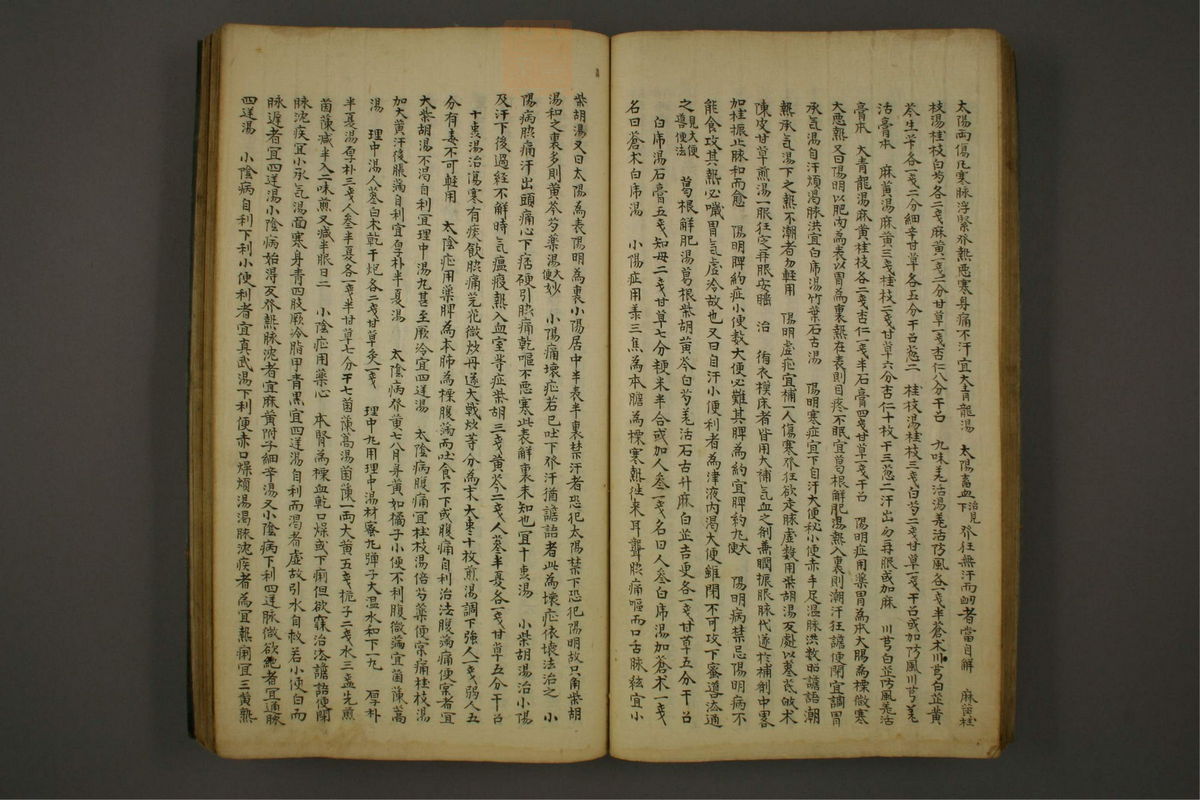 太陽両傷风寒脉浮緊發熱惡寒身痛不汗宜大青龍湯 太陽畜血治見下 發狂無汗而衂者當自解 麻黄桂
枝湯桂枝白芍各二戔麻黄一戔二分甘草一戔杏仁八分干召 九味羌活湯羌活防風各一戔半蒼朮川芎白芷黄
芩生苄各一戔二分細辛甘草各五分干召葱二 桂枝湯桂枝三戔白芍二戔甘草一戔干召或加防風川芎羌
活膏本 麻黄湯麻黄三戔桂枝二戔甘草六分杏仁十枚干三葱二汗出勿再服或加麻 川芎白芷防風羌活
膏本 大青龍湯麻黄桂枝各二戔杏仁一戔半石膏四戔甘草一戔干召 陽明症用藥胃為本大腸為標微寒
大惡熱又曰陽明以肥肉為表以胃為裏熱在表則目疼不眠宜葛根解肥湯熱入裏則潮汗狂譫便閉宜調胃
承气湯自汗煩渴脉洪宜白席湯竹葉石古湯 陽明寒症宜下自汗大便秘小便赤手足温脉洪数曰譫語潮
熱承气湯下之熱不潮者勿輕用 陽明虚症宜補一人傷寒發狂欲走脉虚数用柴胡湯反處以蔘芪朮
陳皮甘草煎湯一服狂定再服安睡 治 循衣模床者皆用大補气血之剤兼瞤振脹脉代遂於補剤中畧
加桂振止脉和而愈 陽明脾約症小便数大便必難其脾為約宜脾約丸便大 陽明病禁忌陽明病不
能食攻其熱必噦胃气虚冷故也又曰自汗小便利者為津液内渴大便雖閉不可攻下蜜導法通
之見大便善便法 葛根解肥湯葛根柴胡黄芩白芍羌活石古升麻白芷吉更各一戔甘草五分干召
白席湯石膏五戔知母二戔甘草七分粳米半合或加人叄一戔名曰人叄白席湯加蒼朮一戔
名曰蒼朮白席湯 小陽症用藥三焦為本膽為標寒熱徃来耳聾脇痛嘔而口舌脉絃宜小
柴胡湯又曰太陽為表陽明為裏小陽居中半表半裏禁汗者恐犯太陽禁下恐犯陽明故只用柴胡
湯和之裏多則黄芩芍藥湯便大妙 小陽痛壊症若已吐下發汗猶譫語者此為壊症依壊法治之 小
陽病脇痛汗出頭痛心下痞硬引脇痛乾嘔不惡寒此表解裏未知也宜十棗湯 小柴胡湯治小陽
及汗下後過経不解時气瘟瘦熱入血室等症柴胡三戔黄芩二戔人蔘半夏各一戔甘草五分干召
十棗湯治傷寒有痰飲脇痛芫花微炒丹遂大戟炒等分為末大棗十枚煎湯調下強人一戔弱人五
分有毒不可輕用 太陰症用藥脾為本肺為標腹滿而吐食不下或腹痛自利治法腹滿痛便宲者宜
大柴胡湯不渴自利宜理中湯九甚至厥冷宜四逆湯 太陰病腹痛宜桂枝湯倍芍藥便宲痛桂枝湯
加大黄汗後脹滿自利宜厚朴半夏湯 太陰病發黄七八月身黄如橘子小便不利腹微滿宜茵蔯蒿
湯 理中湯人蔘白朮乾干炮各二戔甘草炙一戔 理中丸用理中湯材蜜丸彈子大温水和下一丸 厚朴
半夏湯厚朴三戔人叄半夏各一戔半甘草七分干七茵蔯蒿湯茵蔯一両大黄五戔梔子二戔水三盞先煎
茵蔯減半入二味煎又減半服日二 小陰症用藥心 本腎為標血乾口燥或下痢但欲寐治法譫語便閉
脉沈疾宜小承气湯面寒身青四肢厥冷脂甲青黒宜四逆湯自利而渴者虚故引水自救若小便白而
脉遲者宜四逆湯小陰病始得反發熱脉沈者宜麻黄附子細辛湯又小陰病下利四逆脉微欲絶者宜通脉
四逆湯 小陰病自利下利小便利者宜真武湯下利便赤口燥煩湯渴脉沈疾者為宜熱痢宜三黄熟